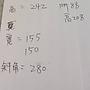 高 = 242 門 88
高 208
寬 = 155
150
斜角 = 280